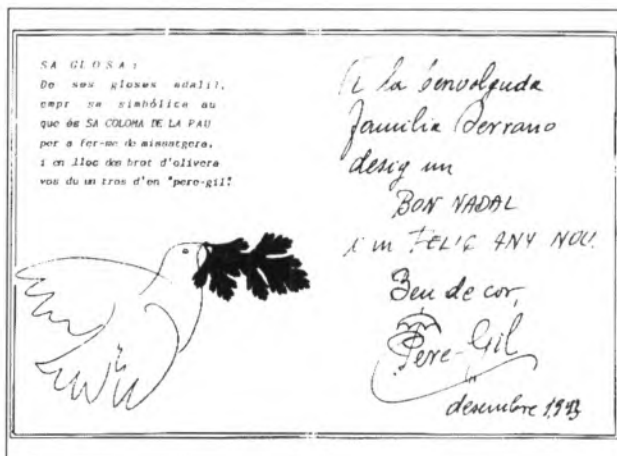 SA GLOSA:
De ses gloses adalil,
empr sa simbólica au
que és SA COLOMA DE LA PAU
per a fer-me de missatgera,
i en lloc des brot d'olivera
vos du un tros d'en "pere-gil".
A la benvolguda
familia Serrano
desig un
BON NADAL
i un FELIÇ ANY NOU.
Ben de cor,
Pere-Gil
desembre 1993